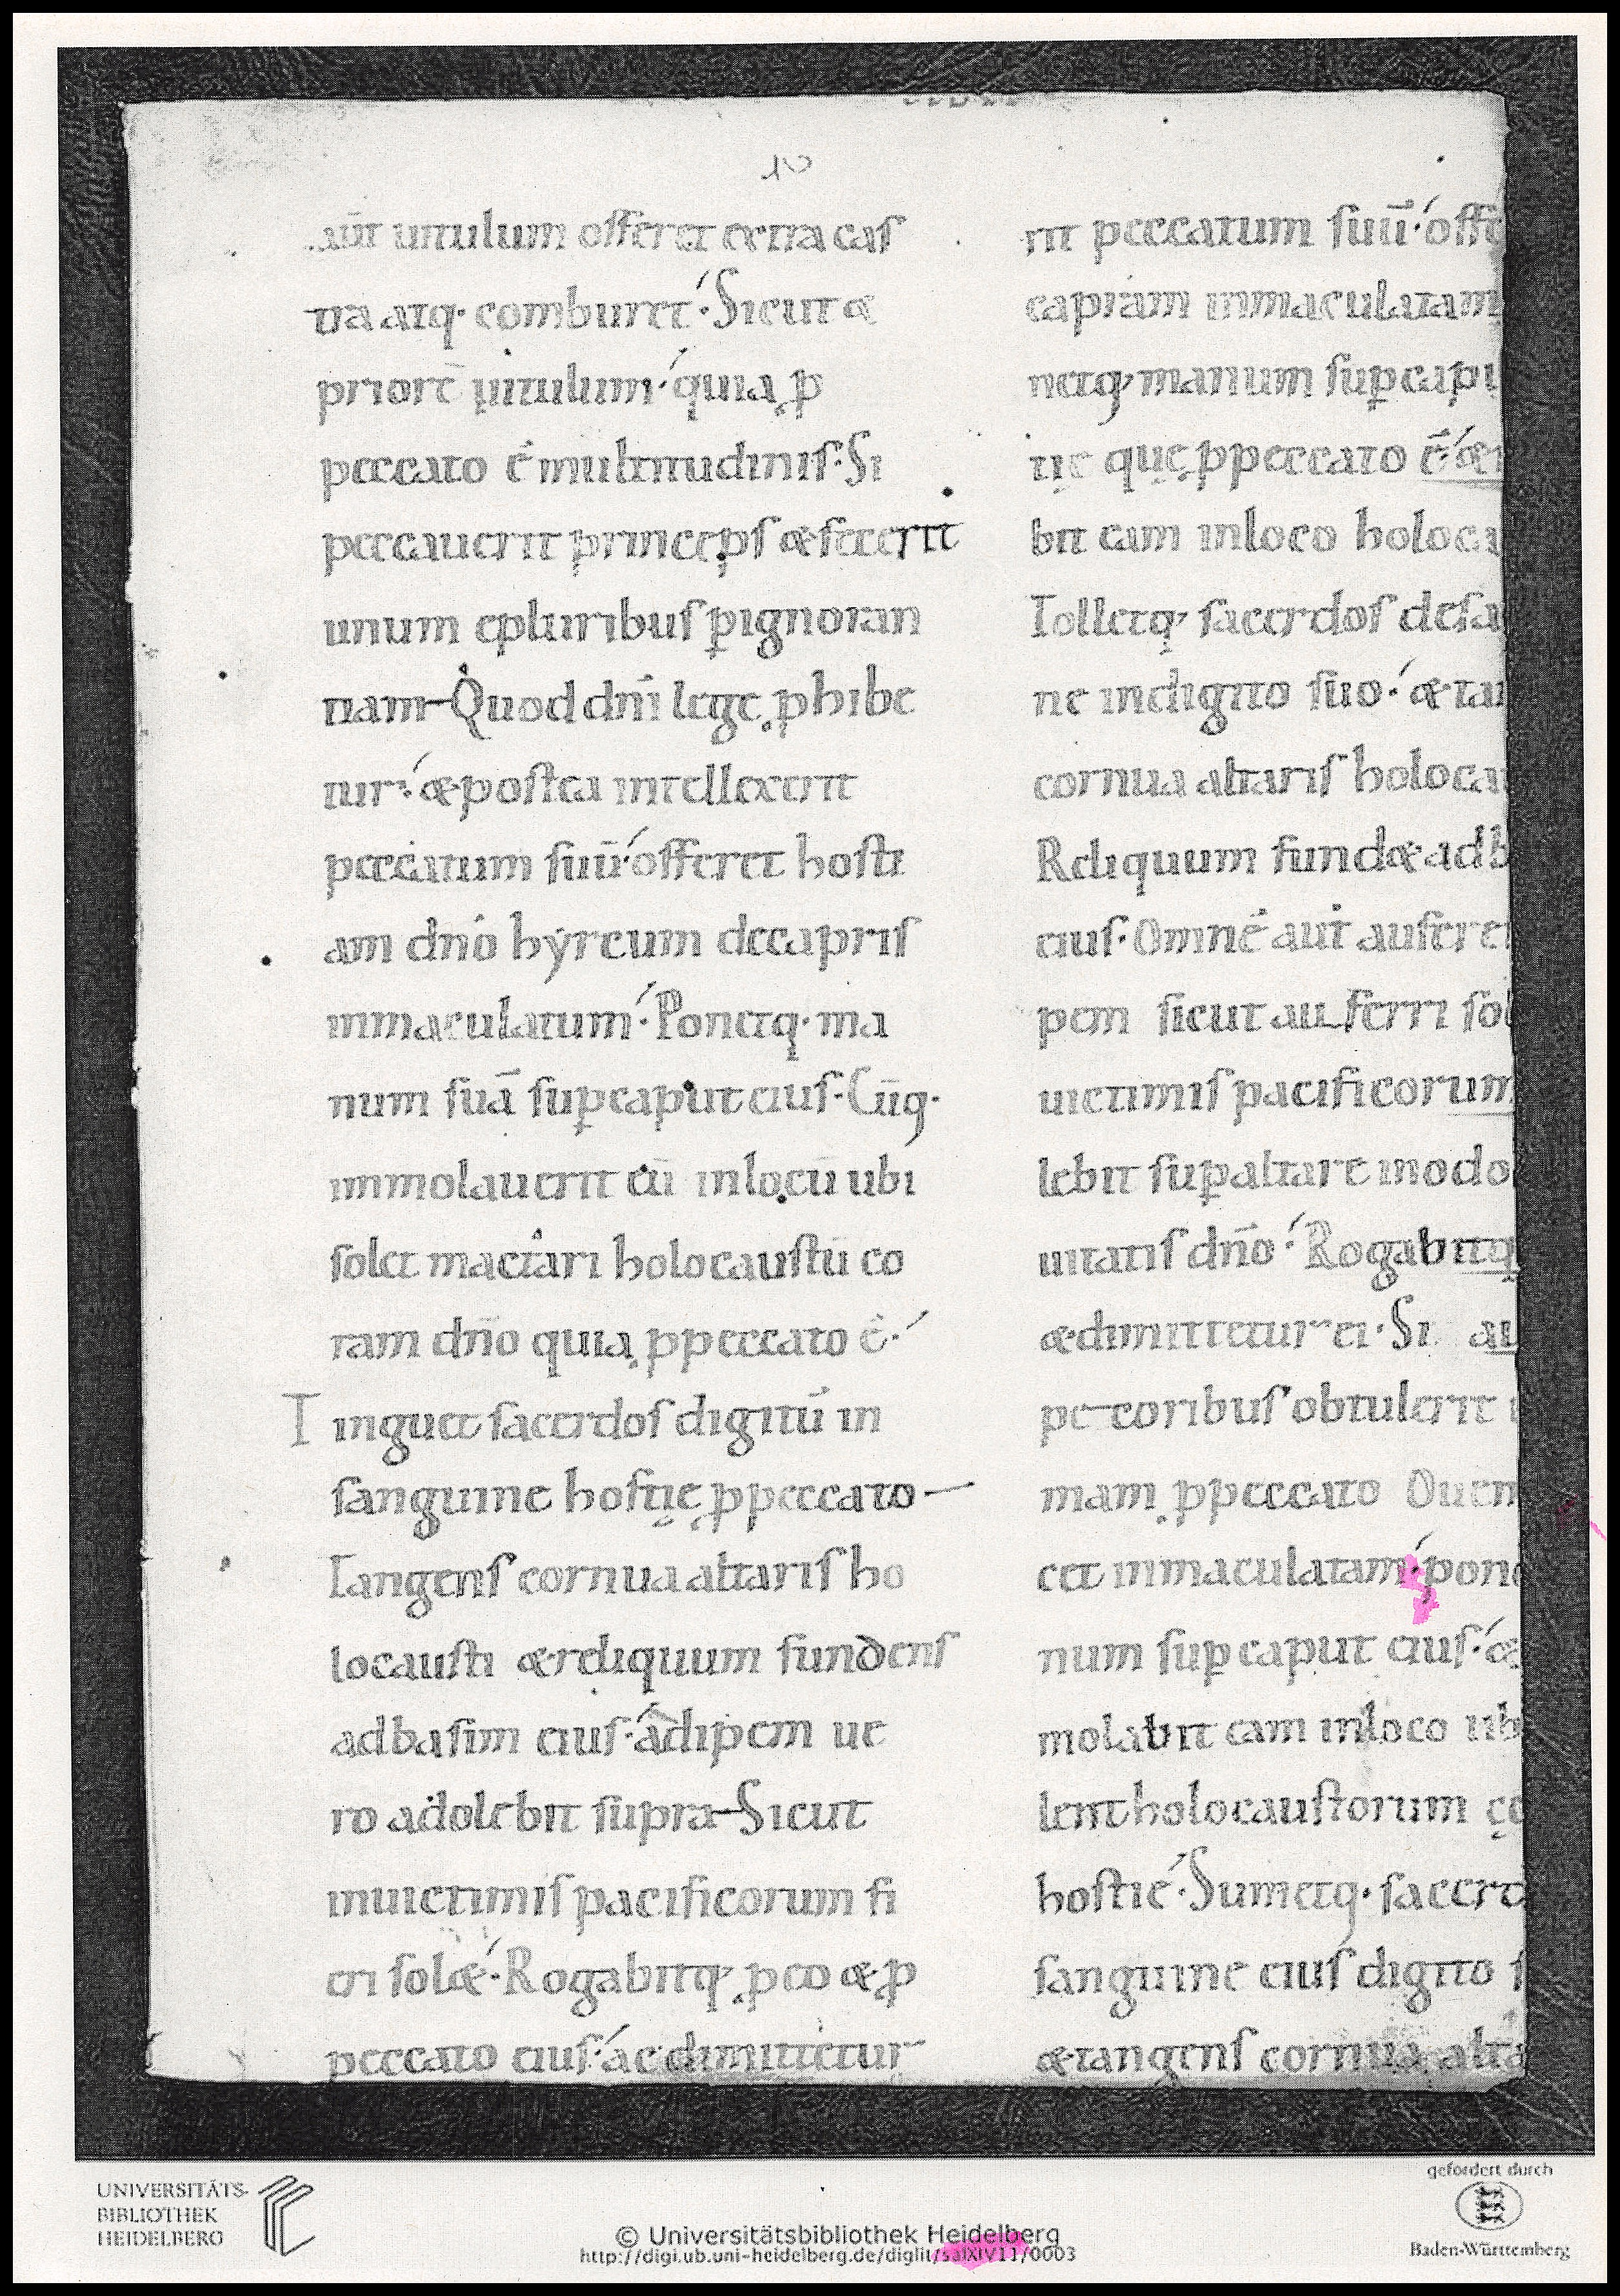 aūt uitulum offeret extra cas
tra atq· comburet·́ Sicut &
priorē uitulum·́ quia p̱
peccato ē multitudinis·́ Si
peccauerit princeps & fecerit
unum epluribus ꝑ ignoran
tiam– Quod dñi lege ꝓhibe
tur·́ & postea intellexerit
peccatum suū·́ offeret hosti
am dño hyrcum decapris
inmaculatum·́ Ponetq· ma
num suā suꝑ caput eius· Cūq·
immolauerit eū inlocū ubi
solet mactari holocaustū co
ram dño quia ꝓ peccato ē·́
Tinguet sacerdos digitū in
sanguine hostię ꝓ peccato–
Tangens cornua altaris ho
locausti & reliquum fundens
ad basim eius·́ adipem ue
ro adolebit supra– Sicut
inuictimis pacificorum fi
eri sol&·́ Rogabitq· ꝓ eo & ꝓ
peccato eius·́ ac dimittetur
rit peccatum suū·́ offe
capram inmaculatam
netq· manum suꝑ capi
tię quę ꝓ peccato ē·́ &
bit eam inloco holoca
Tolletq· sacerdos desa
ne indigito suo·́ & tan
cornua altaris holocau
Reliquum fund& ad b
eius· Omnē aūt aufere
pem sicut auferri sol
uictimis pacificorum
lebit suꝑ altare inodo
uitatis dño·́ Rogabitq
& dimittetur ei· Si au
pecoribus obtulerit
mam ꝓ peccato Ouem
cet inmaculatam·́ pone
num suꝑ caput eius·́ &
molabit eam inloco ub
lent holocaustorum cę
hostie·́ Sumetq· sacerd
sanguine eius digito s
& tangens cornua alta
UNIVERSITÄTS-
BIBLIOTHEK
HEIDELBERG
© Universitätsbibliothek Heidelberg
http://digi.ub.uni-heidelberg.de/diglit/salXIV11/0003
gefördert durch
Baden-Württemberg